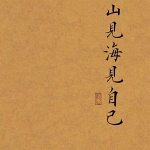 山見海見自己